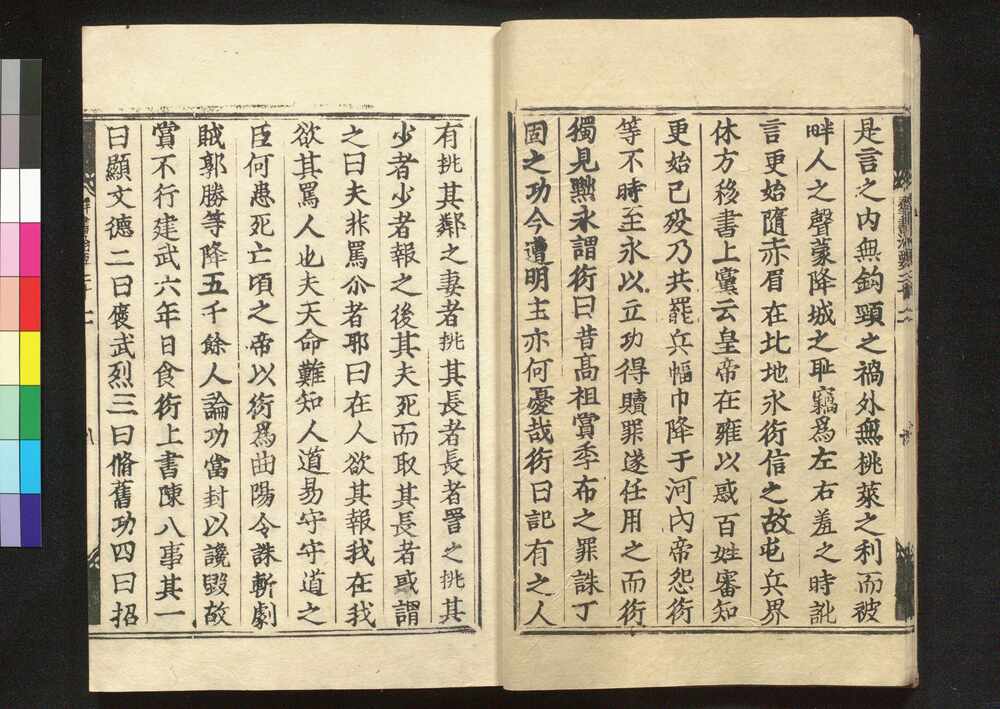 是言之内無鈎頸之禍外無桃萊之利而被
畔人之聲蒙降城之恥竊為左右羞之時訛
言更始隨赤眉在北地永衍信之故屯兵界
休方移書上黨云皇帝在雍以惑百姓審知
更始已殁乃共罷兵幅巾降于河内帝怨衍
等不時至永以立功得贖罪遂任用之而衍
獨見黜永謂衍曰昔高祖賞季布之罪誅丁
固之功今遭明主亦何憂哉衍曰記有之人
有挑其鄰之妻者挑其長者長者詈之挑其
少者少者報之後其夫死而取其長者或謂
之曰夫非罵尒者耶曰在人欲其報我在我
欲其罵人也夫天命難知人道易守守道之
臣何患死亡頃之帝以衍為曲陽令誅斬劇
賊郭勝等降五千餘人論功當封以讒毀故
賞不行建武六年日食衍上書陳八事其一
曰顯文德二曰褒武烈三曰脩舊功四曰招